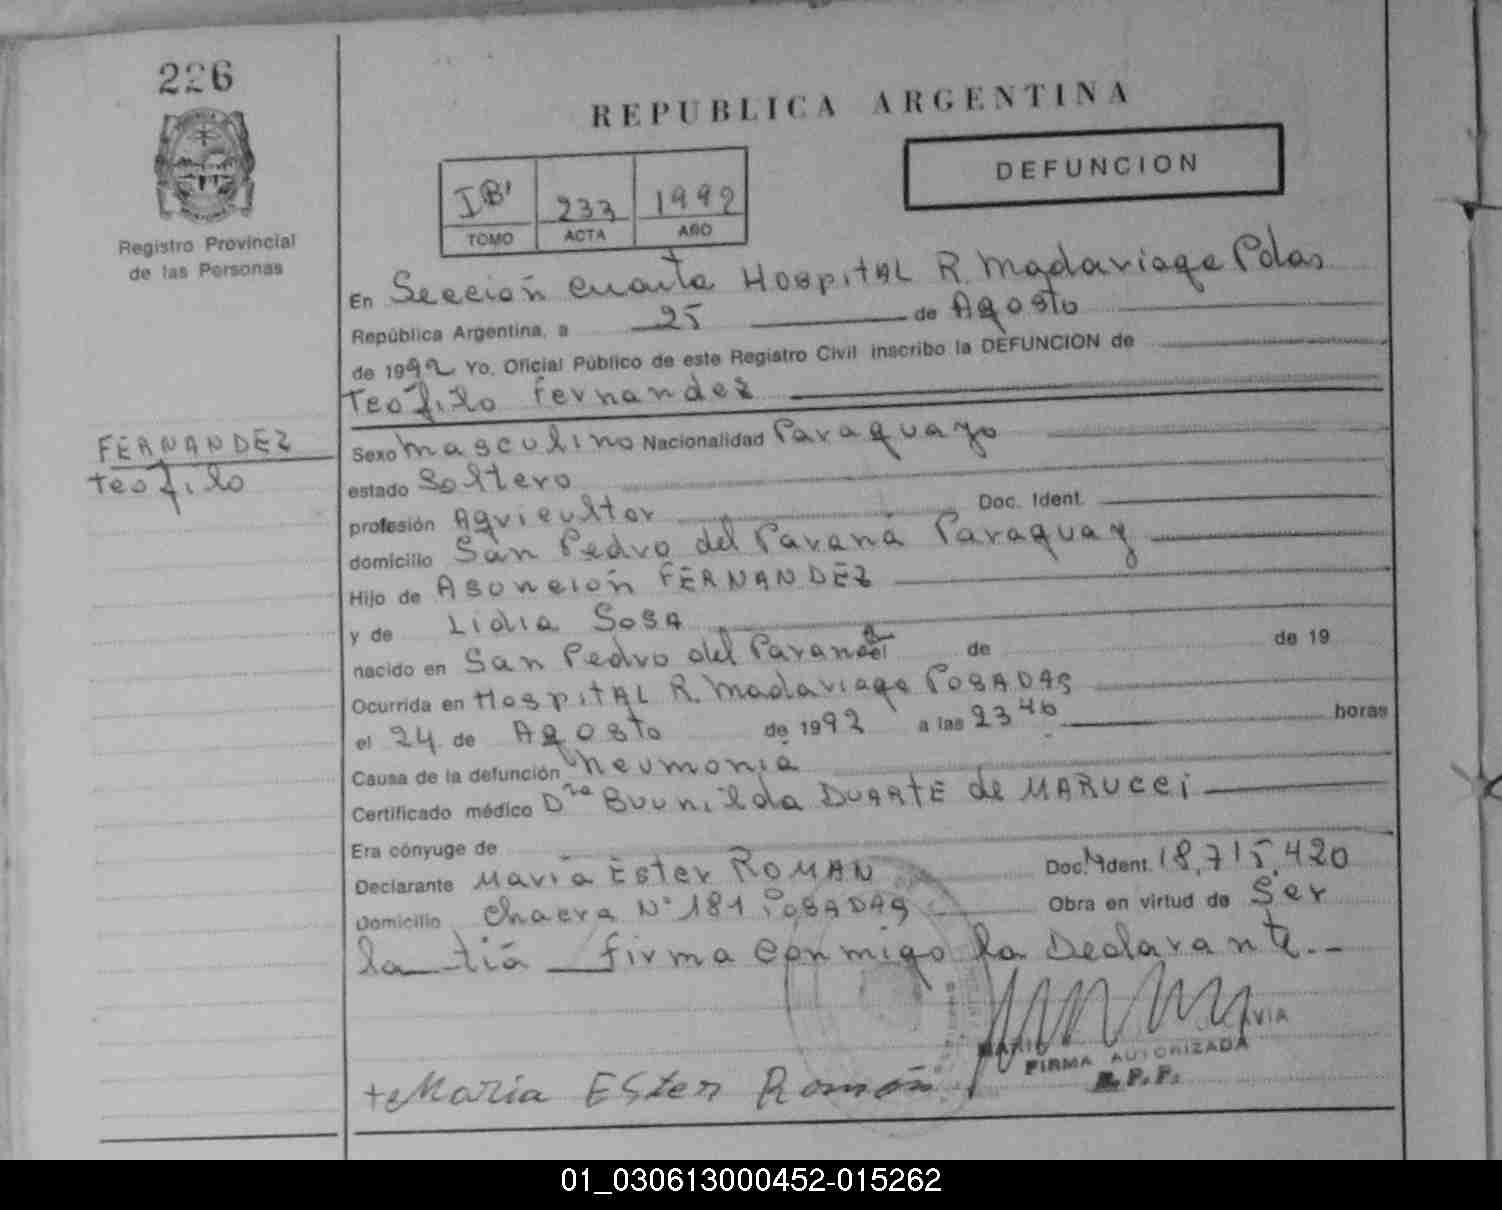 226
REPUBLICA ARGENTINA
DEFUNCION
IB' 233 1992
TOMO ACTA AÑO
Registro Provincial
de las Personas
En Sección cuarta Hospital R. Madariaga Pdas
República Argentina, a 25 de Agosto
de 1992 Yo, Oficial Público de este Registro Civil inscribo la DEFUNCION de
Teofilo Fernandez
FERNANDEZ
Teofilo
Sexo masculino Nacionalidad Paraguayo
estado Soltero
profesión Agricultor Doc. Ident.
domicilio San Pedro del Paraná Paraguay
Hijo de Asunción FERNANDEZ
y de Lidia Sosa
nacido en San Pedro del Paraná el de de 19
Ocurrida en Hospital R. Madariaga POSADAS
el 24 de Agosto de 1992 a las 23 40 horas
Causa de la defunción Neumonia
Certificado médico Dra DUARTE de MARUCCI
Era cónyuge de
Declarante Maria Ester ROMAN Doc. N Ident. 18,715,420
Domicilio Chacra N° 181 POSADAS Obra en virtud de Ser
la tiá firma conmigo la Declarante.--
FIRMA AUTORIZADA
R.P.P.
+Maria Ester Román
01_030613000452-015262